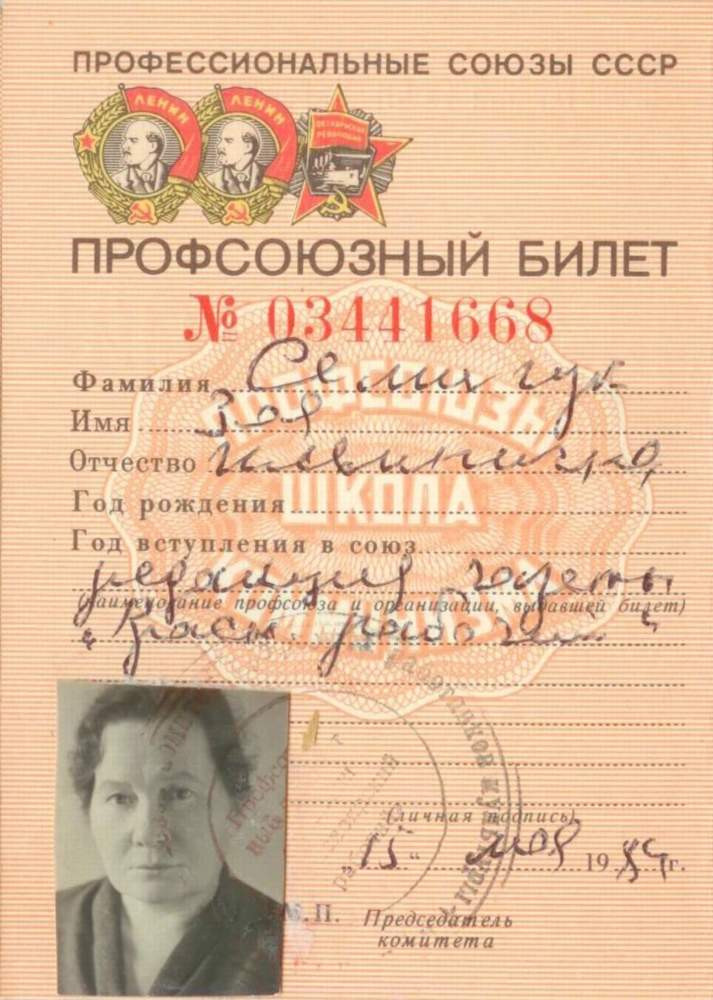 ПРОФЕССИОНАЛЬНЫЕ СОЮЗЫ СССР
ЛЕНИН ЛЕНИН ОКТЯБРЬСКАЯ РЕВОЛЮЦИЯ
ПРОФСОЮЗНЫЙ БИЛЕТ
№ 03441668
Фамилия Семигук
ПРОФСОЮЗЫ
Имя Зоя
Отчество
ШКОЛА
Год рождения
Год вступления в союз
КОММУНИЗМА
редакция газеты
(наименование профсоюза и организации, выдавшей билет)
"Красн. рабочий"
работников культуры
(личная подпись)
"15" мая 1984 г.
М.П. Председатель
комитета